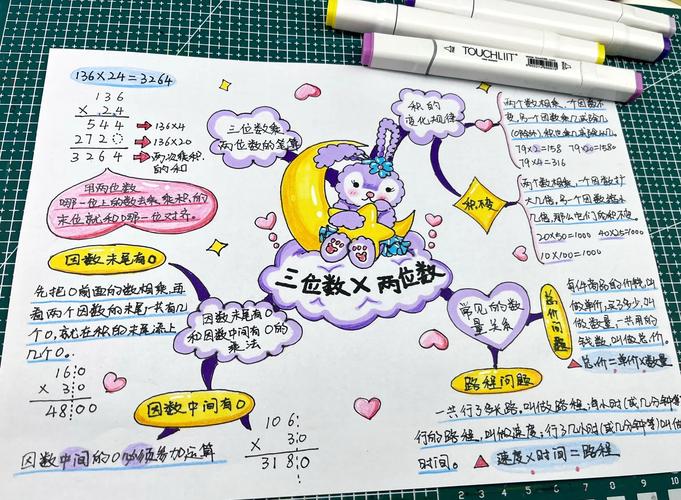 TOUCHLIIT
136×24=3264
136
×24
544 → 136×4
2720 → 136×20
3264 → 两次乘积
的和
三位数乘
两位数的笔算
用两位数
哪一位上的数去乘,乘积的
末位就和哪一位对齐。
因数末尾有0
先把0前面的数相乘,再
看两个因数的末尾一共有几
个0,就在积的末尾添上
几个0。
160
×30
4800
因数末尾有0
和因数中间有0的
乘法
因数中间有0
因数中间的0必须参加运算
106
×30
3180
三位数×两位数
积的
变化规律
两个数相乘,一个因数不
变,另一个因数乘几或除以几
(0除外)积也乘几或除以几
79×2=158 79×20=1580
79×4=316
积不变
两个数相乘,一个因数扩
大几倍,另一个因数缩小
几倍,那么它们的积不变。
20×50=1000 40×25=1000
10×100=1000
常见的数
量关系
总价问题
每件商品的价钱,叫
做单价,买了多少,叫
做数量,一共用的
钱数,叫做总价。
▲总价=单价×数量
路程问题
一共行了多长路,叫做路程,每小时(或几分钟等)
行的路程,叫做速度,行了几小时(或几分钟等)叫做
时间。▲速度×时间=路程
2 3 4 5 6 7 8 9 10